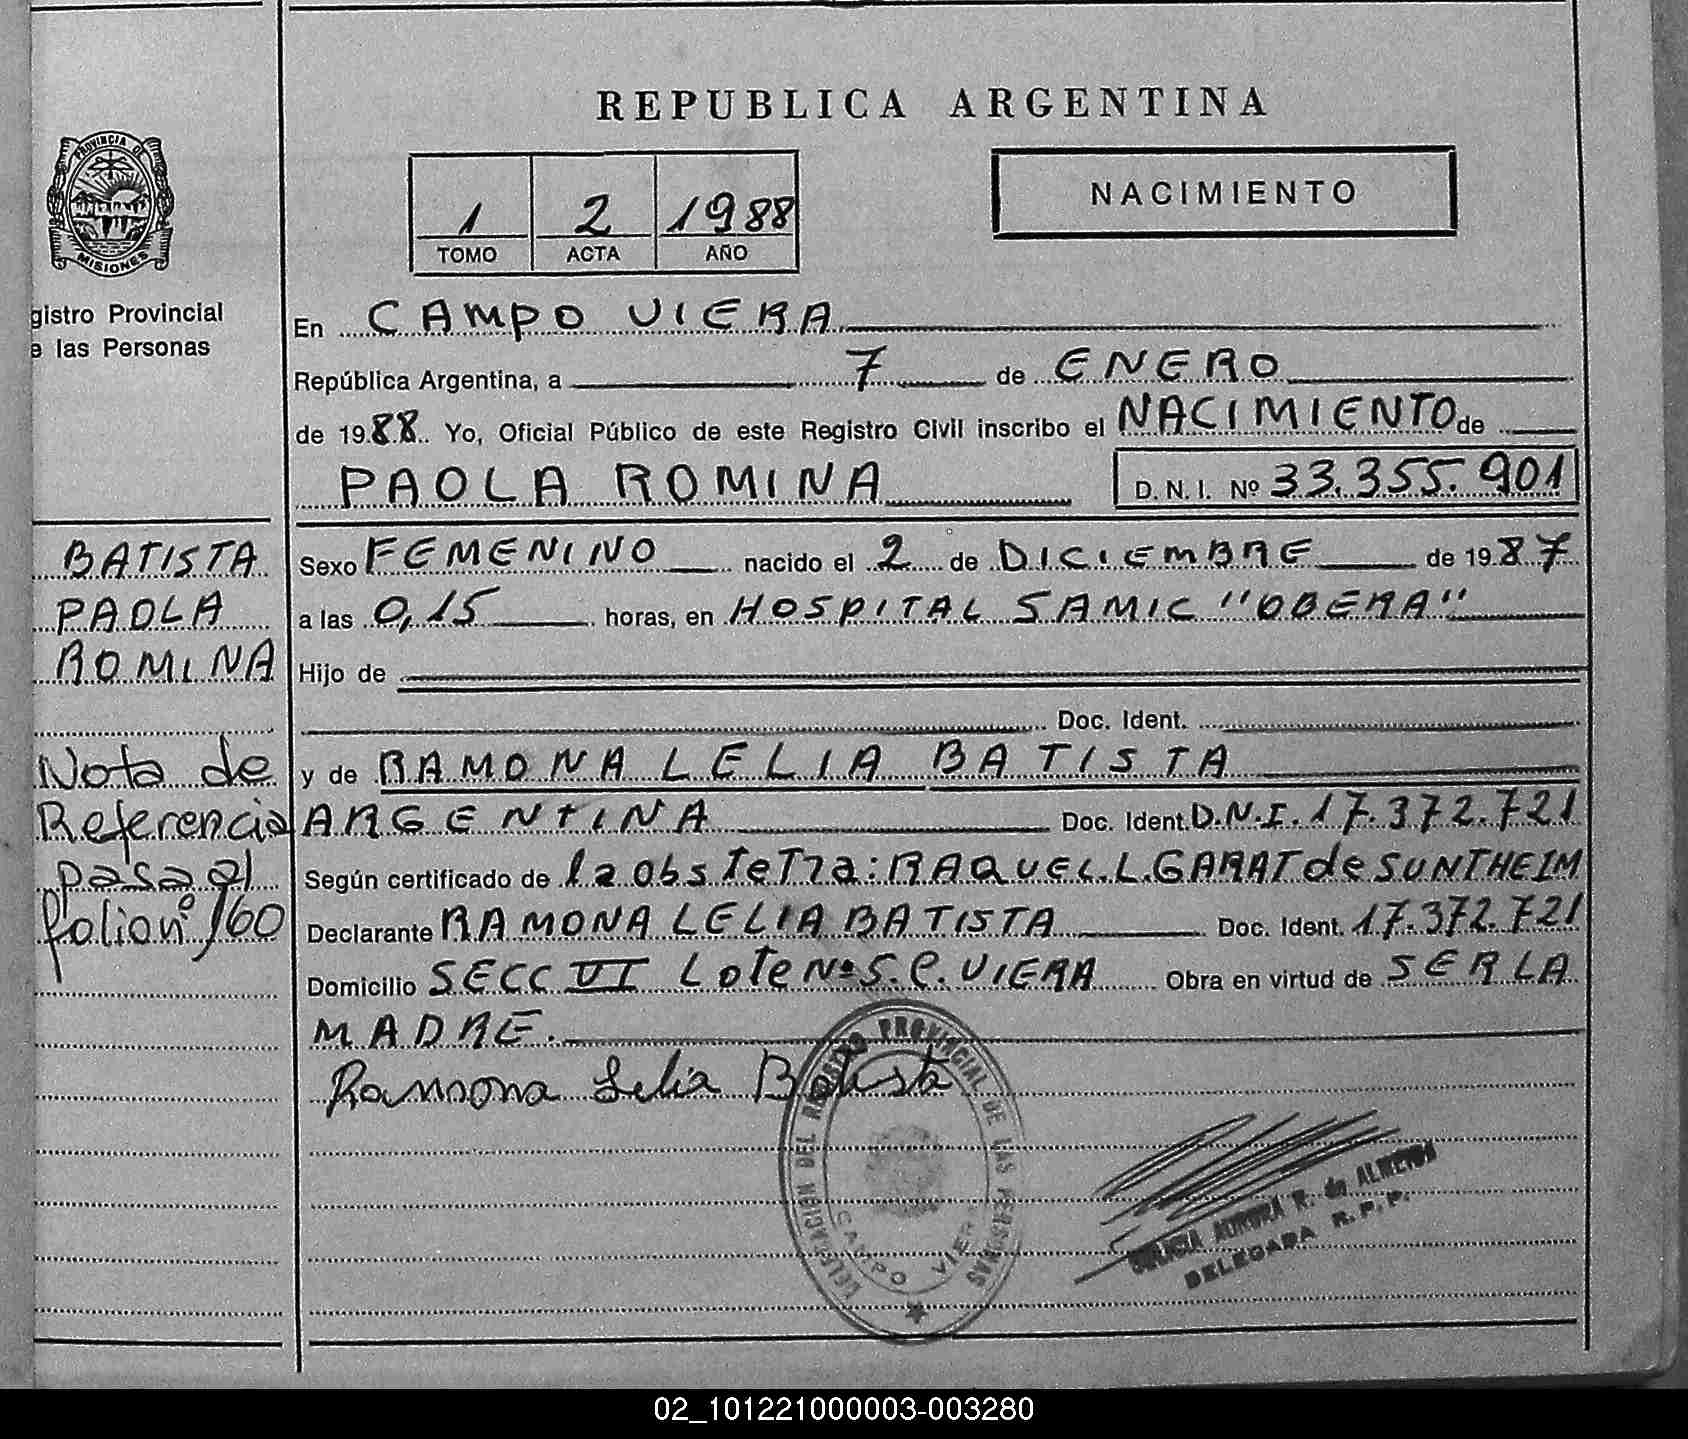 REPUBLICA ARGENTINA
PROVINCIA DE
MISIONES
1 2 1988
TOMO ACTA AÑO
NACIMIENTO
gistro Provincial
e las Personas
En CAMPO VIERA
República Argentina, a 7 de ENERO
de 1988. Yo, Oficial Público de este Registro Civil inscribo el NACIMIENTO de
PAOLA ROMINA D. N. I. Nº 33.355.901
BATISTA
PAOLA
ROMINA
Nota de
Referencia
pasa al
folio nº 160
Sexo FEMENINO nacido el 2 de DICIEMBRE de 1987
a las 0,15 horas, en HOSPITAL SAMIC "OBERA"
Hijo de
Doc. Ident.
y de RAMONA LELIA BATISTA
ARGENTINA Doc. Ident. D.N.I. 17.372.721
Según certificado de la obsTeTra: RAQUEL.L.GARAT de SUNTHEIM
Declarante RAMONA LELIA BATISTA Doc. Ident. 17.372.721
Domicilio SECC VI LoTe Nº 5.C.VIERA Obra en virtud de SER LA
MADRE.
Ramona Lelia Batista
DELEGACION DEL REGISTRO PROVINCIAL DE LAS PERSONAS
CAMPO VIERA
AURORA R. de ALMEIDA
DELEGADA R.P.P.
02_101221000003-003280